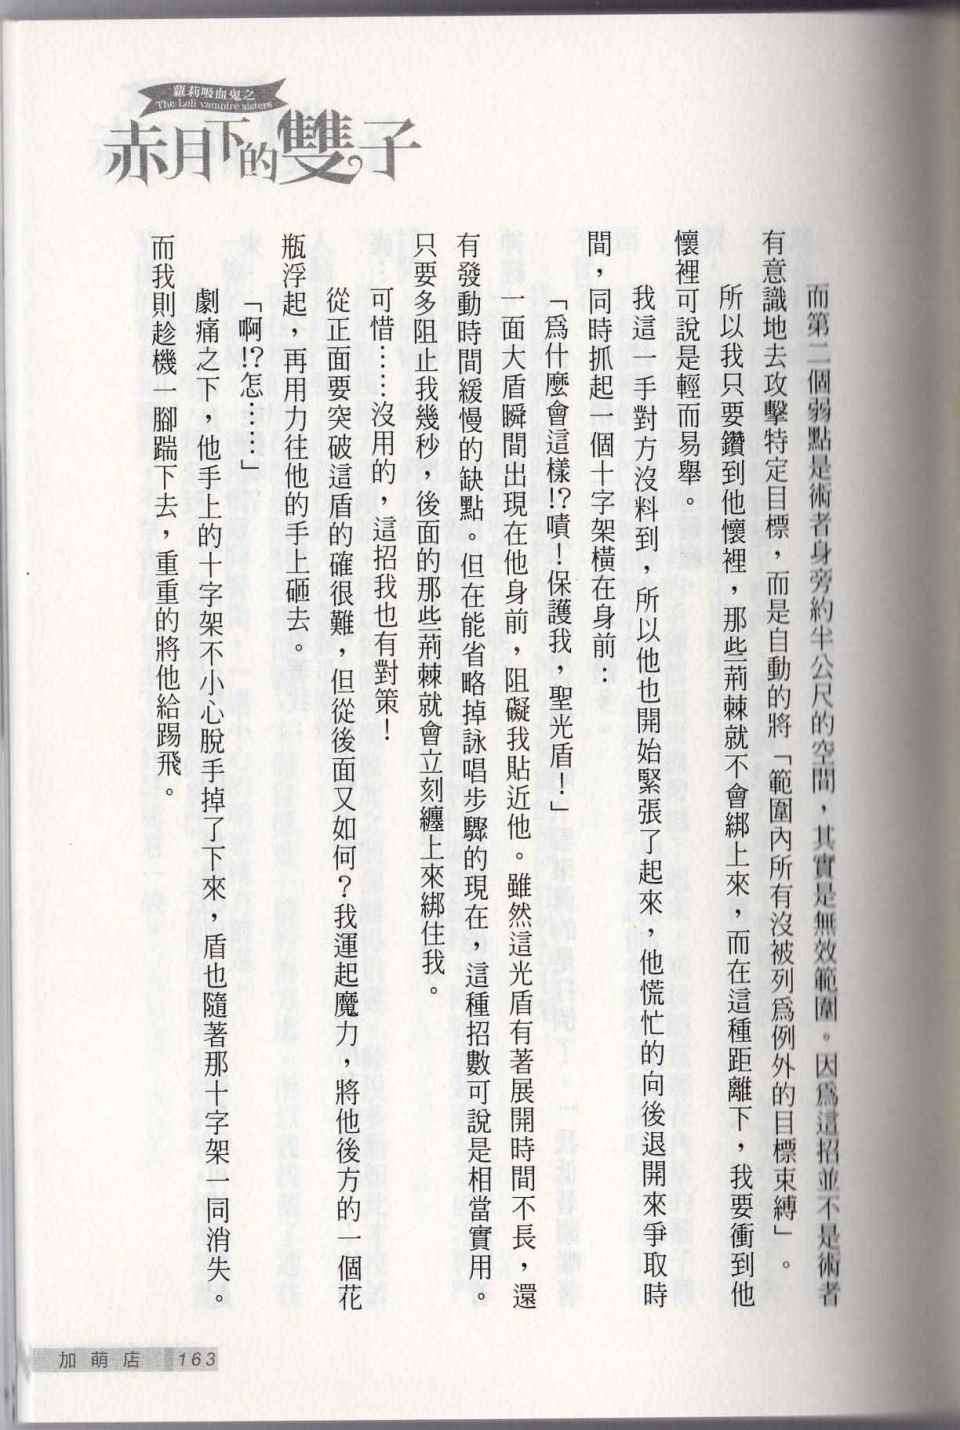 蘿莉吸血鬼之
The Loli vampire sisters
赤月下的雙子
而第二個弱點是術者身旁約半公尺的空間，其實是無效範圍。因為這招並不是術者
有意識地去攻擊特定目標，而是自動的將「範圍內所有沒被列為例外的目標束縛」。
所以我只要鑽到他懷裡，那些荊棘就不會綁上來，而在這種距離下，我要衝到他
懷裡可說是輕而易舉。
我這一手對方沒料到，所以他也開始緊張了起來，他慌忙的向後退開來爭取時
間，同時抓起一個十字架橫在身前：
「為什麼會這樣!?嘖！保護我，聖光盾！」
一面大盾瞬間出現在他身前，阻礙我貼近他。雖然這光盾有著展開時間不長，還
有發動時間緩慢的缺點。但在能省略掉詠唱步驟的現在，這種招數可說是相當實用。
只要多阻止我幾秒，後面的那些荊棘就會立刻纏上來綁住我。
可惜……沒用的，這招我也有對策！
從正面要突破這盾的確很難，但從後面又如何？我運起魔力，將他後方的一個花
瓶浮起，再用力往他的手上砸去。
「啊!?怎……」
劇痛之下，他手上的十字架不小心脫手掉了下來，盾也隨著那十字架一同消失。
而我則趁機一腳踹下去，重重的將他給踢飛。
加萌店 163